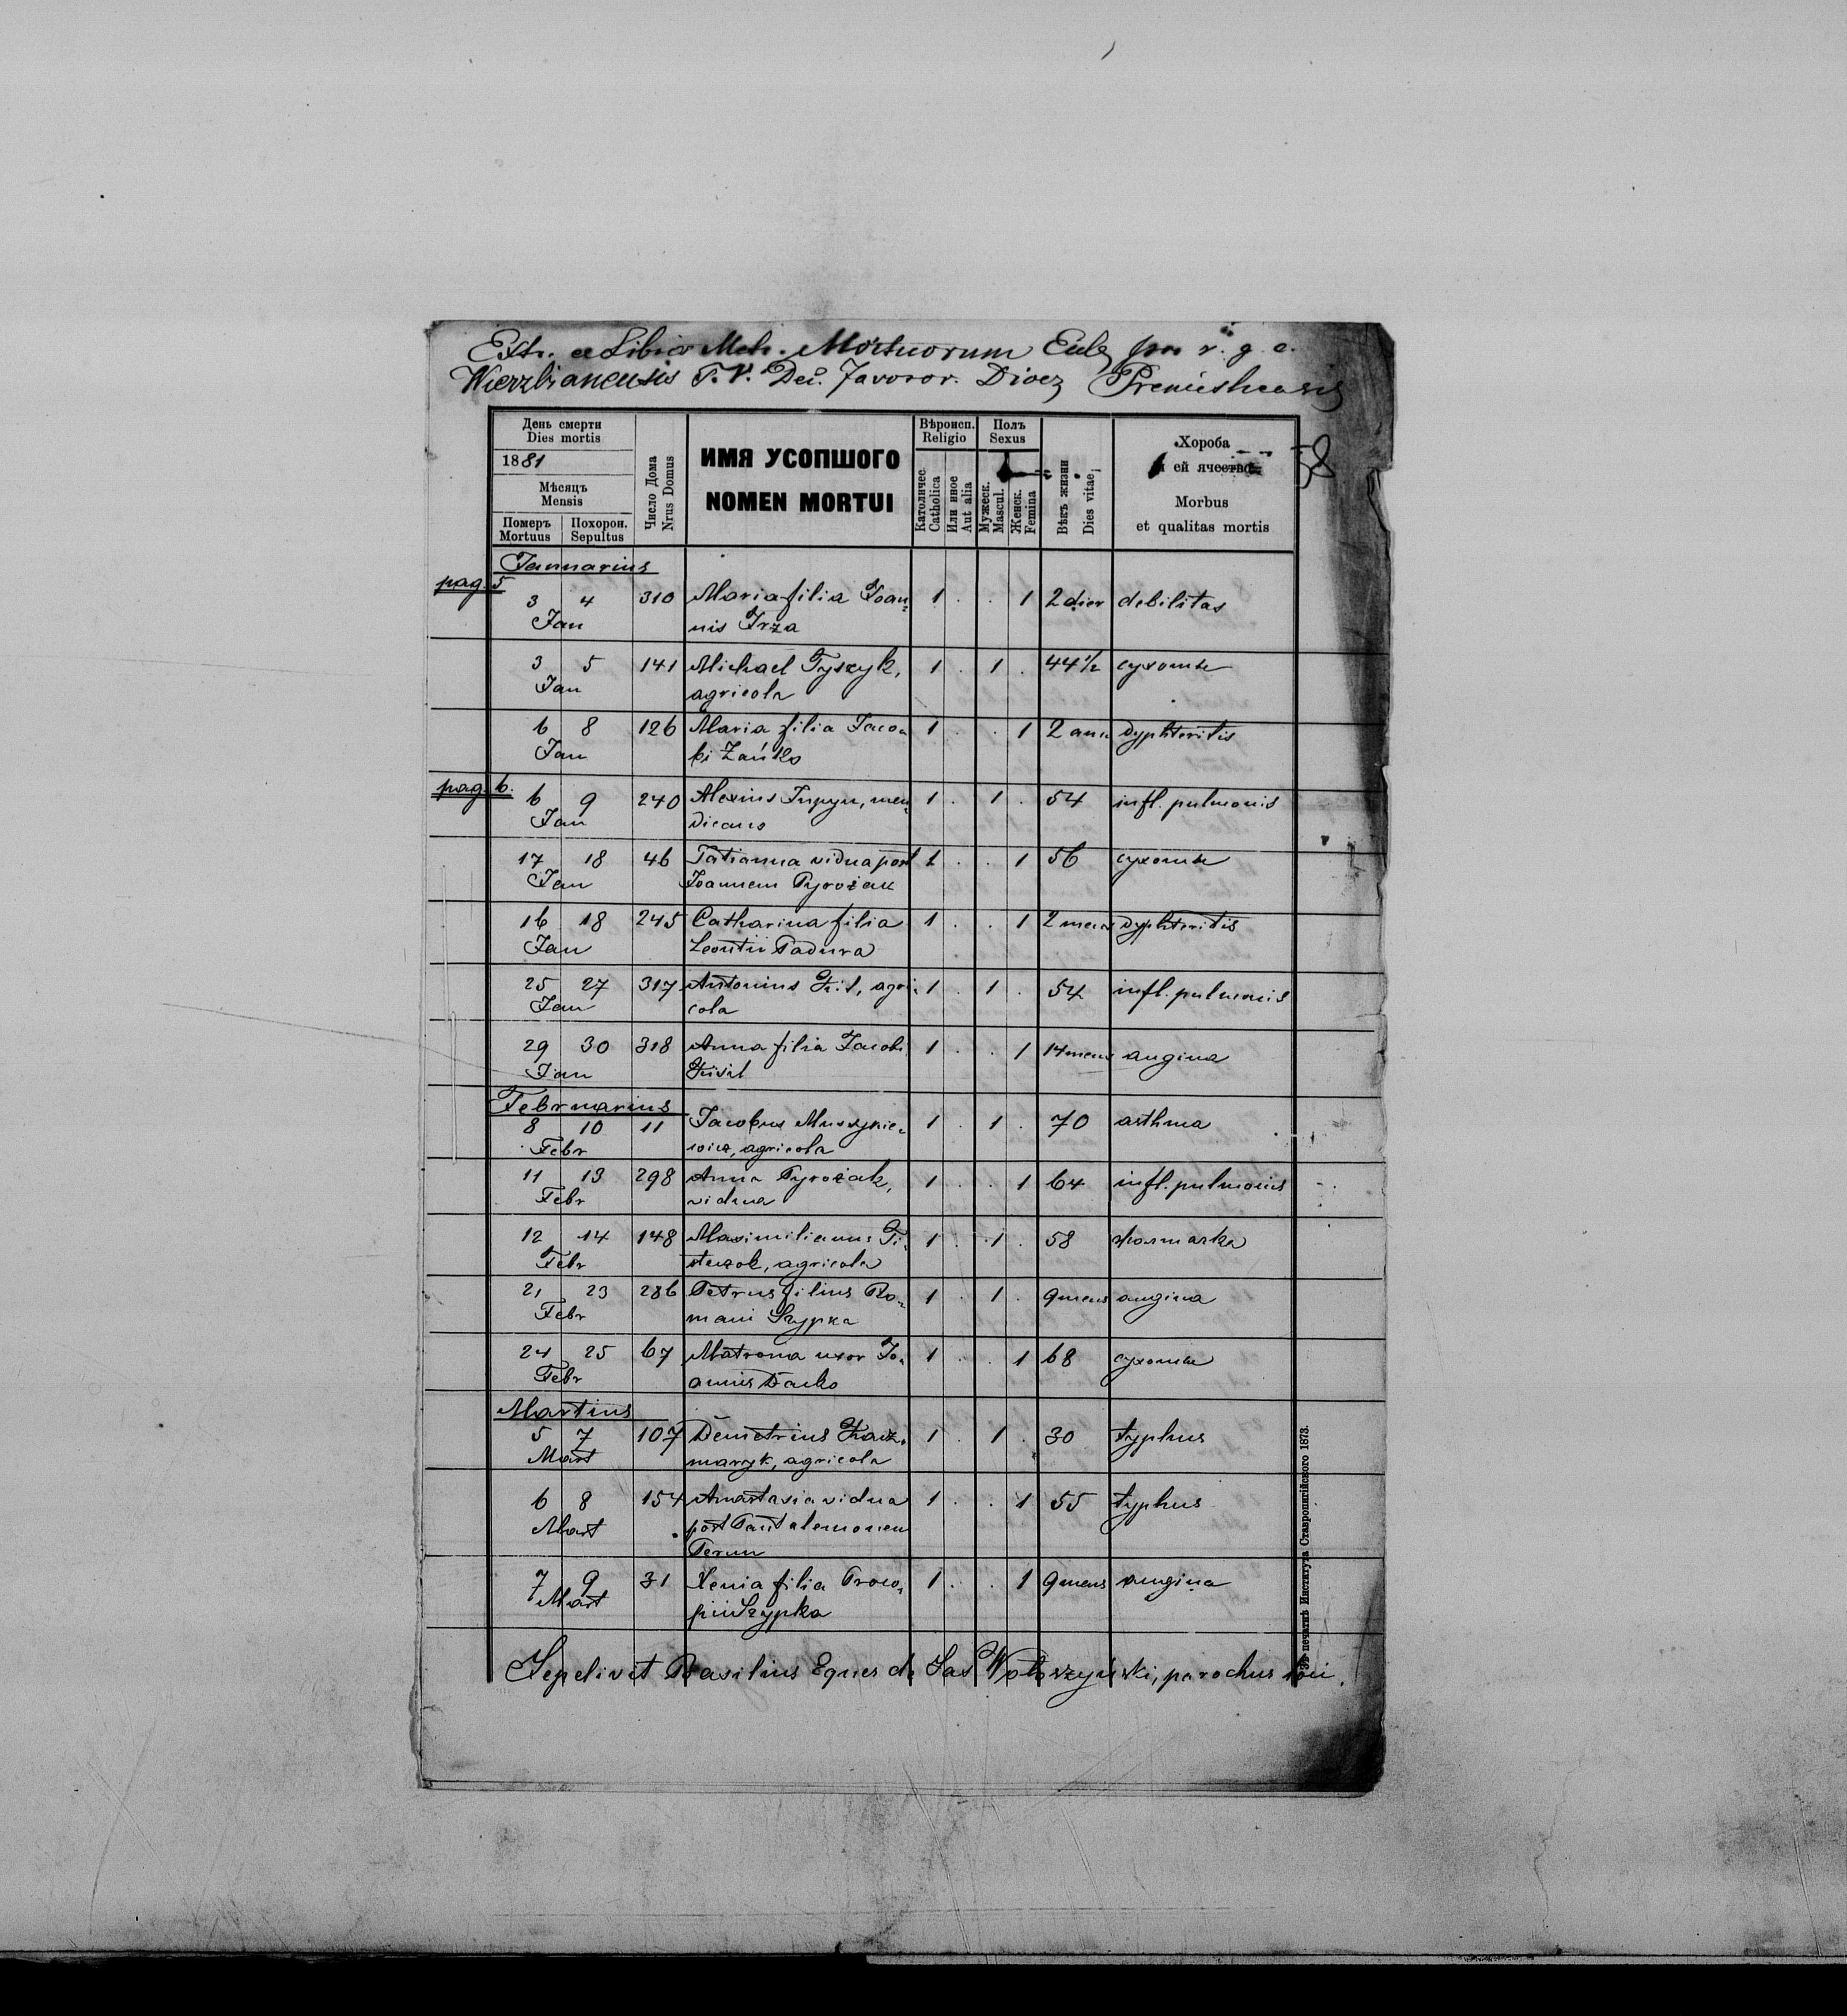 Extr. ex Libro Metr. Mortuorum Eccle par r. g. c.
Wierzbianensis T. V. Dec. Javorov. Dioez Premisliensis
58
День смерти
Dies mortis
1881
Мѣсяцъ
Mensis
Померъ Похорон.
Mortuus Sepultus
Число Дома
Nrus Domus
ИМЯ УСОПШОГО
NOMEN MORTUI
Вѣроисп.
Religio
Католичес.
Catholica
Или иное
Aut alia
Полъ
Sexus
Мужеск.
Mascul.
Женск.
Femina
Вѣкъ жизни
Dies vitae
Хороба
и ей ячество
Morbus
et qualitas mortis
Januarius
pag. 5
3 4 310 Maria filia Joan- 1 . . 1 2 dier debilitas
Jan nis Irza
3 5 141 Michael Tyszyk, 1 . 1 . 44 1/2 сухоты
Jan agricola
6 8 126 Maria filia Jaco- 1 . . 1 2 ann dyphteritis
Jan bi Zańko
pag. 6.
6 9 240 Alexius men- 1 . 1 . 54 infl. pulmonis
Jan dicans
17 18 46 Tatianna vidua post 1 . . 1 56 сухоты
Jan Joannem Pyrożak
16 18 245 Catharina filia 1 . . 1 2 mens dyphteritis
Jan Leontii Padura
25 27 317 Antonius agri- 1 . 1 . 54 infl. pulmonis
Jan cola
29 30 318 Anna filia Jacobi 1 . . 1 14 mens angina
Jan
Februarius
8 10 11 Jacobus Muszynie- 1 . 1 . 70 asthma
Febr wicz, agricola
11 13 298 Anna Pyrożak, 1 . . 1 64 infl. pulmonis
Febr vidua
12 14 148 Maximilianus 1 . 1 . 58
Febr agricola
21 23 286 Petrus filius Ro- 1 . 1 . 9 mens angina
Febr mani Szypka
24 25 67 Matrona uxor Jo- 1 . . 1 68 сухоты
Febr annis Dačko
Martius
5 7 107 Demetrius Kacz- 1 . 1 . 30 typhus
Mart maryk, agricola
6 8 154 Anastasia vidua 1 . . 1 55 typhus
Mart post Pantalemonem
Perun
7 9 31 Xenia filia Proco- 1 . . 1 9 mens angina
Mart pii Szypka
Sepelivit Basilius Eques de Sas Wołoszyński, parochus loci.
Зъ печатнѣ Института Ставропигійского 1873.